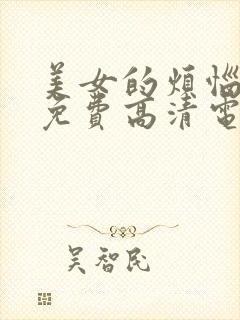 美女的烦恼
免费高清电
吴智民